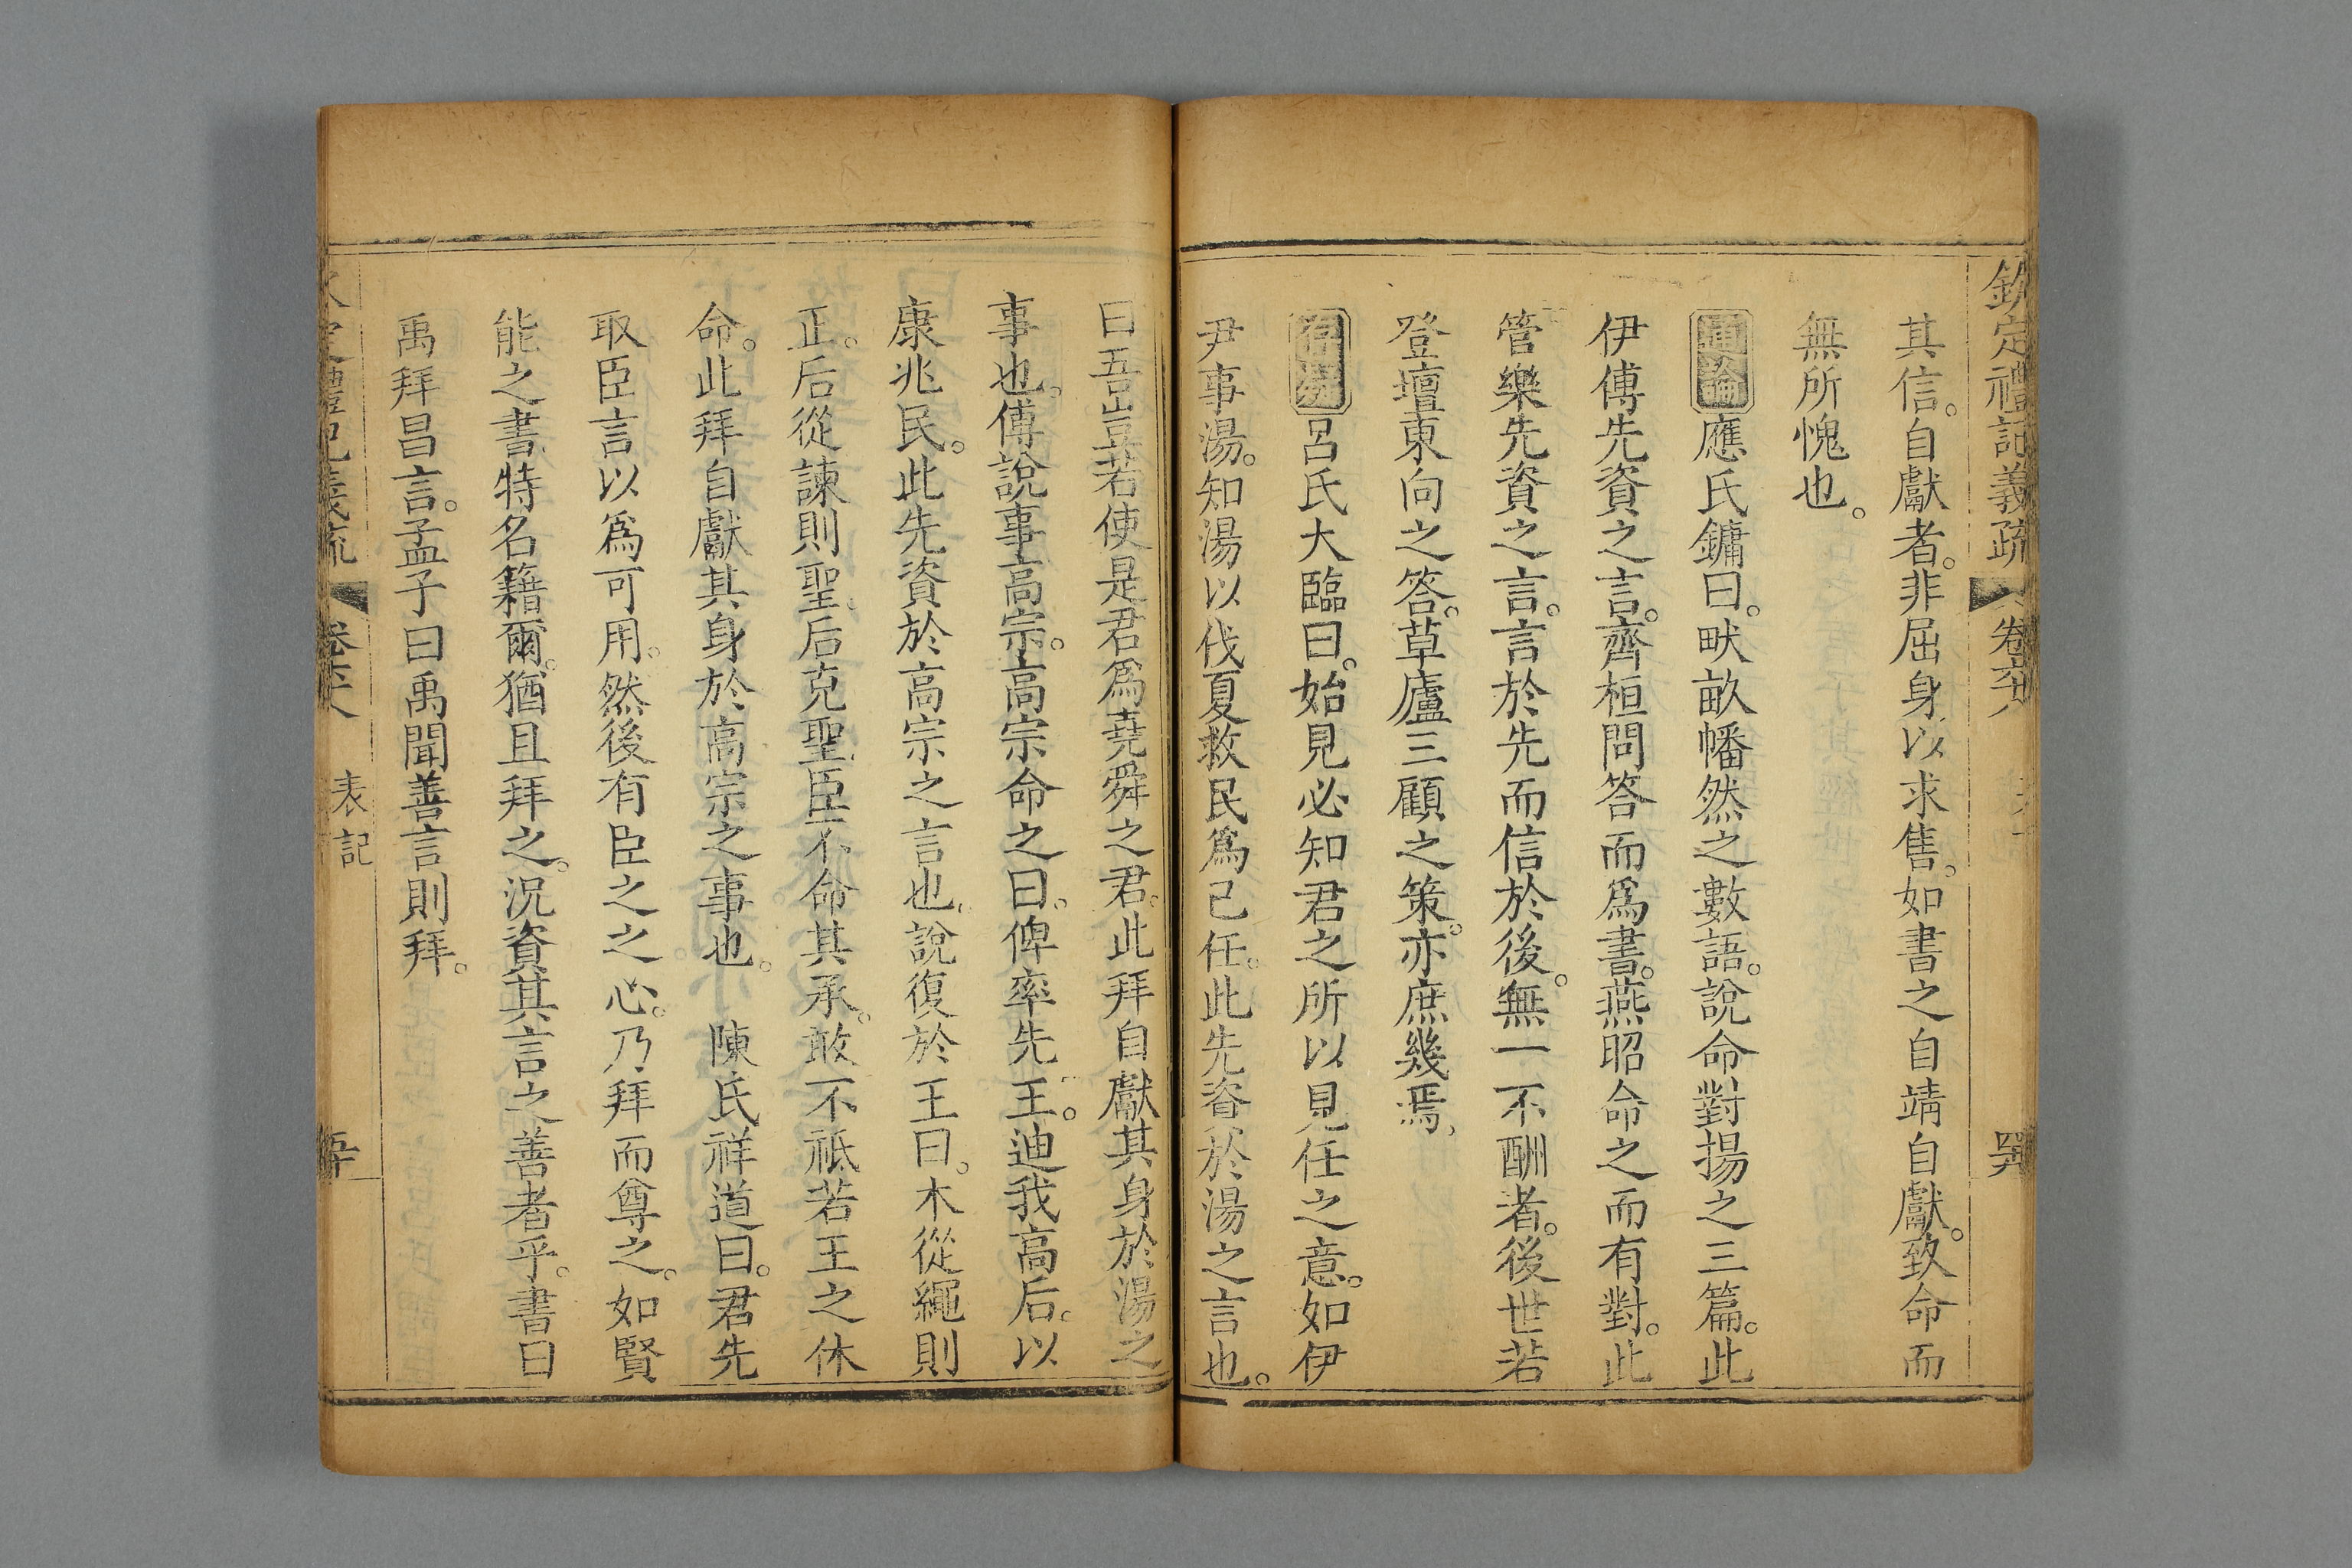 欽定禮記義疏
卷
其信。自獻者。非屈身以求售。如書之自靖自獻。致命而
無所愧也。
通論應氏鏞曰。畎畝幡然之數語。說命對揚之三篇。此
伊傅先資之言。齊桓問答而爲書。燕昭命之而有對。此
管樂先資之言。言於先而信於後。無一不酬者。後世若
登壇東向之答。草廬三顧之策。亦庶幾焉
存疑呂氏大臨曰。始見必知君之所以見任之意。如伊
尹事湯。知湯以伐夏救民爲己任。此先資於湯之言也。
曰吾豈若使是君爲堯舜之君。此拜自獻其身於湯之
事也。傅說事高宗。高宗命之曰。俾率先王。迪我高后。以
康兆民。此先資於高宗之言也。說復於王曰。木從繩則
正。后從諫則聖。后克聖。臣不命其承。敢不祗若王之休
命。此拜自獻其身於高宗之事也。 陳氏祥道曰。君先
取臣言以爲可用。然後有臣之之心。乃拜而尊之。如賢
能之書特名籍爾。猶且拜之。況資其言之善者乎。書曰
禹拜昌言。孟子曰禹聞善言則拜。
定禮記義疏
卷
表記